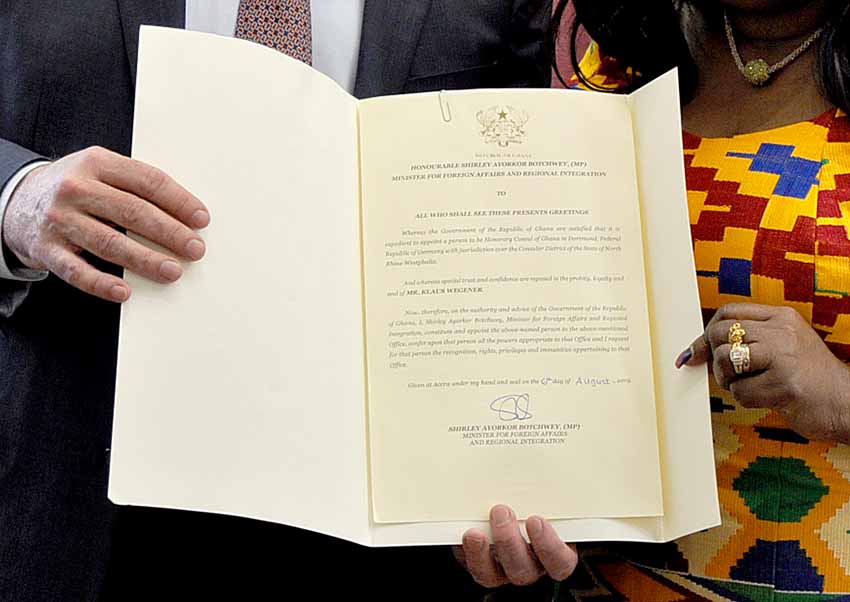 REPUBLIC OF GHANA
HONOURABLE SHIRLEY AYORKOR BOTCHWEY, (MP)
MINISTER FOR FOREIGN AFFAIRS AND REGIONAL INTEGRATION
TO
ALL WHO SHALL SEE THESE PRESENTS GREETINGS
Whereas the Government of the Republic of Ghana are satisfied that it is
expedient to appoint a person to be Honorary Consul of Ghana in Dortmund, Federal
Republic of Germany with jurisdiction over the Consular District of the State of North
Rhine-Westphalia.
And whereas special trust and confidence are reposed in the probity, loyalty and
and of MR. KLAUS WEGENER.
Now, therefore, on the authority and advice of the Government of the Republic
of Ghana, I, Shirley Ayorkor Botchwey, Minister for Foreign Affairs and Regional
Integration, constitute and appoint the above-named person to the above-mentioned
Office, confer upon that person all the powers appropriate to that Office and I request
for that person the recognition, rights, privileges and immunities appertaining to that
Office.
Given at Accra under my hand and seal on the day of August
SHIRLEY AYORKOR BOTCHWEY, (MP)
MINISTER FOR FOREIGN AFFAIRS
AND REGIONAL INTEGRATION